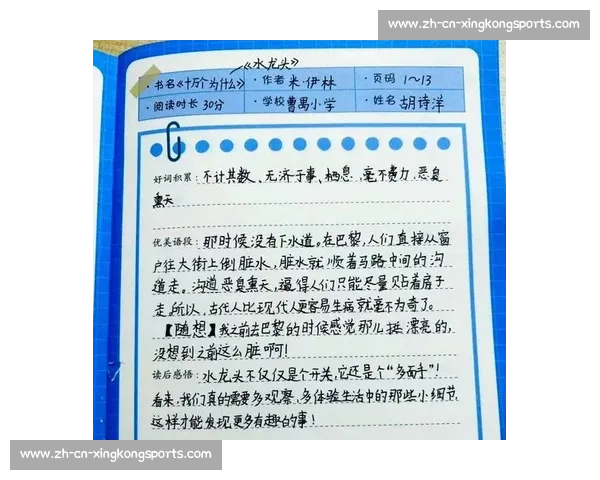 www.zh-cn-xingkongsports.com
《水龙头》
·书名《十万个为什么》 ·作者 米·伊林 ·页码 1～13
·阅读时长 30分 ·学校 曹禺小学 ·姓名 胡诗洋
好词积累：不计其数、无济于事、栖息、毫不费力、恶臭
熏天
优美语段：那时候没有下水道。在巴黎，人们直接从窗
户往大街上倒脏水，脏水就顺着马路中间的沟
道走。沟道恶臭熏天，逼得人们只能尽量贴着房子
走。所以，古代人比现代人更容易生病就毫不为奇了。
【随想】我之前去巴黎的时候感觉那儿挺漂亮的，
没想到之前这么脏啊！
读后感悟：水龙头不仅仅是个开关，它还是个“多面手”！
看来，我们真的需要多观察，多体验生活中的那些小细节，
这样才能发现更多有趣的事！
www.zh-cn-xingkongsports.com